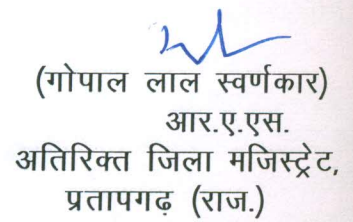 (गोपाल लाल स्वर्णकार)
आर.ए.एस.
अतिरिक्त जिला मजिस्ट्रेट,
प्रतापगढ़ (राज.)